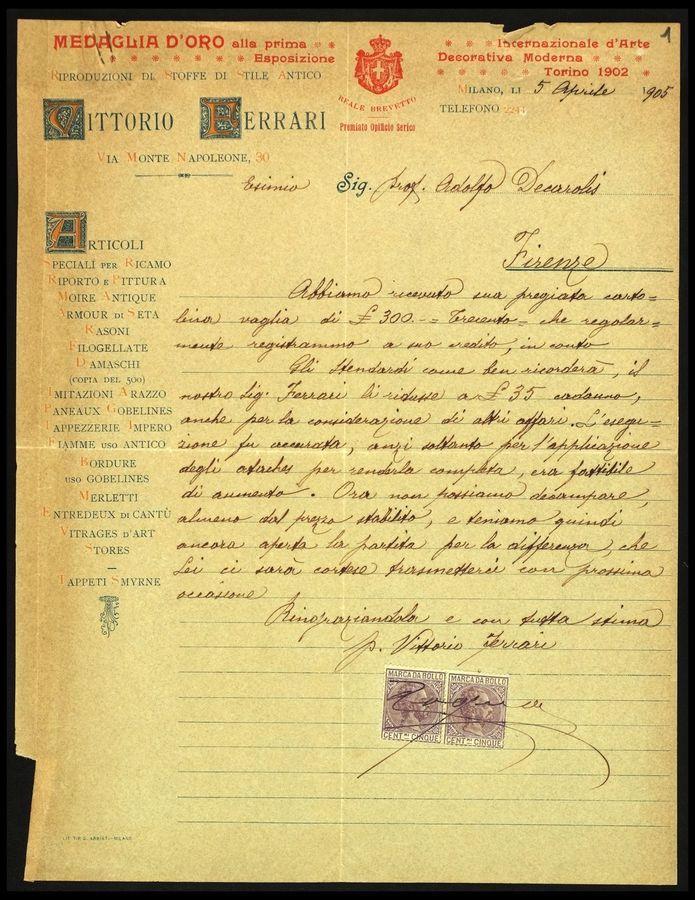 1
MEDAGLIA D'ORO alla prima
Esposizione
Internazionale d'Arte
Decorativa Moderna
Torino 1902
RIPRODUZIONI DI STOFFE DI STILE ANTICO
REALE BREVETTO
Premiato Opificio Serico
MILANO, LI 5 Aprile 1905
TELEFONO 2244
VITTORIO FERRARI
VIA MONTE NAPOLEONE, 30
Esimio Sig. prof. Adolfo Decarolis
Firenze
ARTICOLI
SPECIALI PER RICAMO
RIPORTO E PITTURA
MOIRE ANTIQUE
ARMOUR DI SETA
RASONI
FILOGELLATE
DAMASCHI
(COPIA DEL 500)
IMITAZIONI ARAZZO
PANEAUX GOBELINES
TAPPEZZERIE IMPERO
FIAMME USO ANTICO
BORDURE
USO GOBELINES
MERLETTI
ENTREDEUX DI CANTÙ
VITRAGES D'ART
STORES
TAPPETI SMYRNE
Abbiamo ricevuto sua pregiata carto=
lina vaglia di £ 300.-= Trecento= che regolar=
mente registrammo a suo credito, in conto
Gli Stendardi come ben ricorderà, il
nostro Sig. Ferrari li ridusse a £ 35 cadauno,
anche per la considerazione di altri affari. L'esegu=
zione fu accurata, anzi soltanto per l'applicazione
degli ataches per renderla completa, era fattibile
di aumento. Ora non possiamo decampare,
almeno dal prezzo stabilito, e teniamo quindi
ancora aperta la partita per la differenza, che
Lei ci sarà cortese trasmetterci con prossima
occasione
Ringraziandola e con tutta stima
p. Vittorio Ferrari
MARCA DA BOLLO
CENT.MI CINQUE
MARCA DA BOLLO
CENT.MI CINQUE